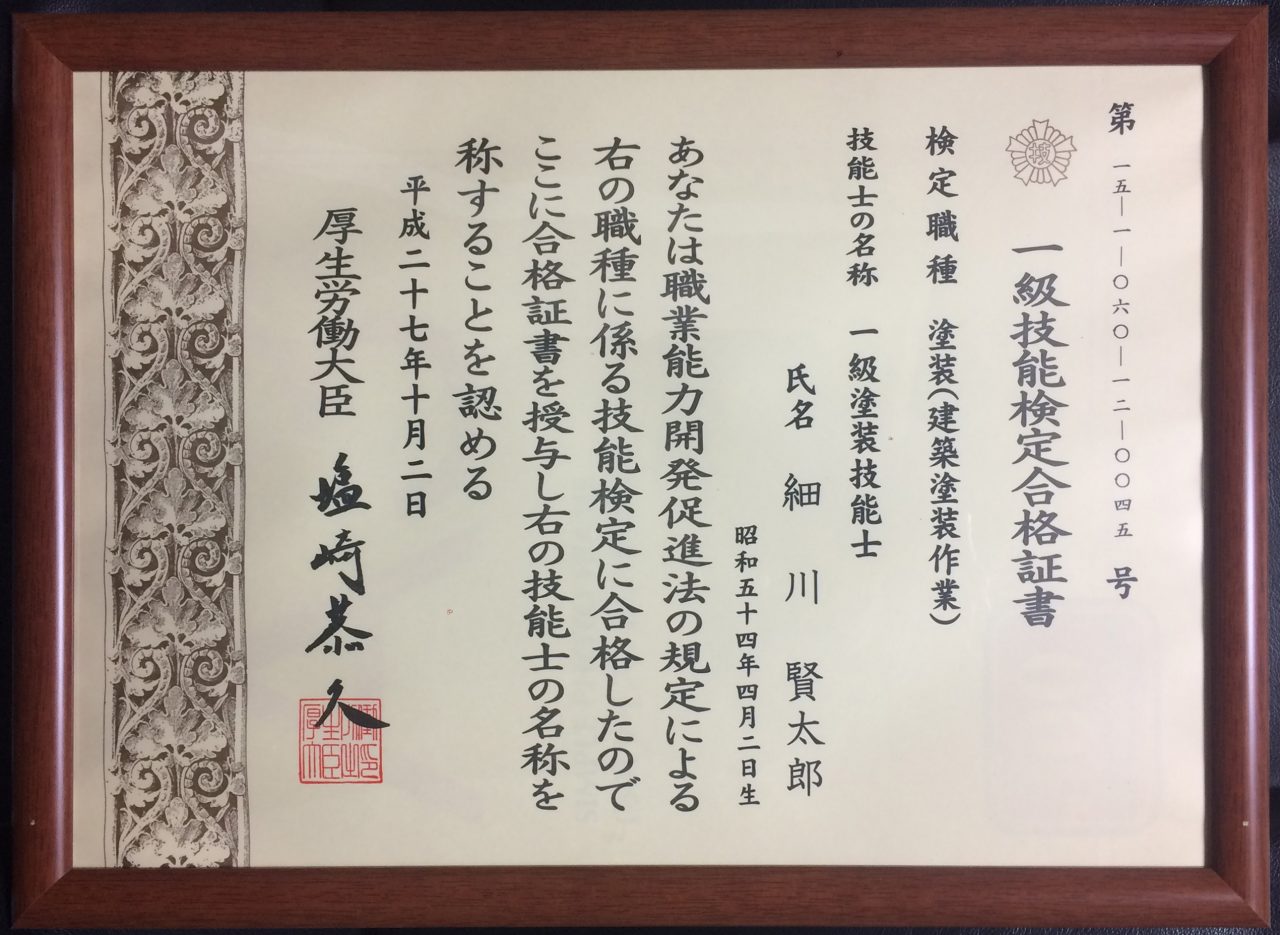 第一五―一―〇六〇―一二―〇〇四五号
技
一級技能検定合格証書
検定職種 塗装(建築塗装作業)
技能士の名称 一級塗装技能士
氏名 細川 賢太郎
昭和五十四年四月二日生
あなたは職業能力開発促進法の規定による
右の職種に係る技能検定に合格したので
ここに合格証書を授与し右の技能士の名称を
称することを認める
平成二十七年十月二日
厚生労働大臣 塩崎恭久